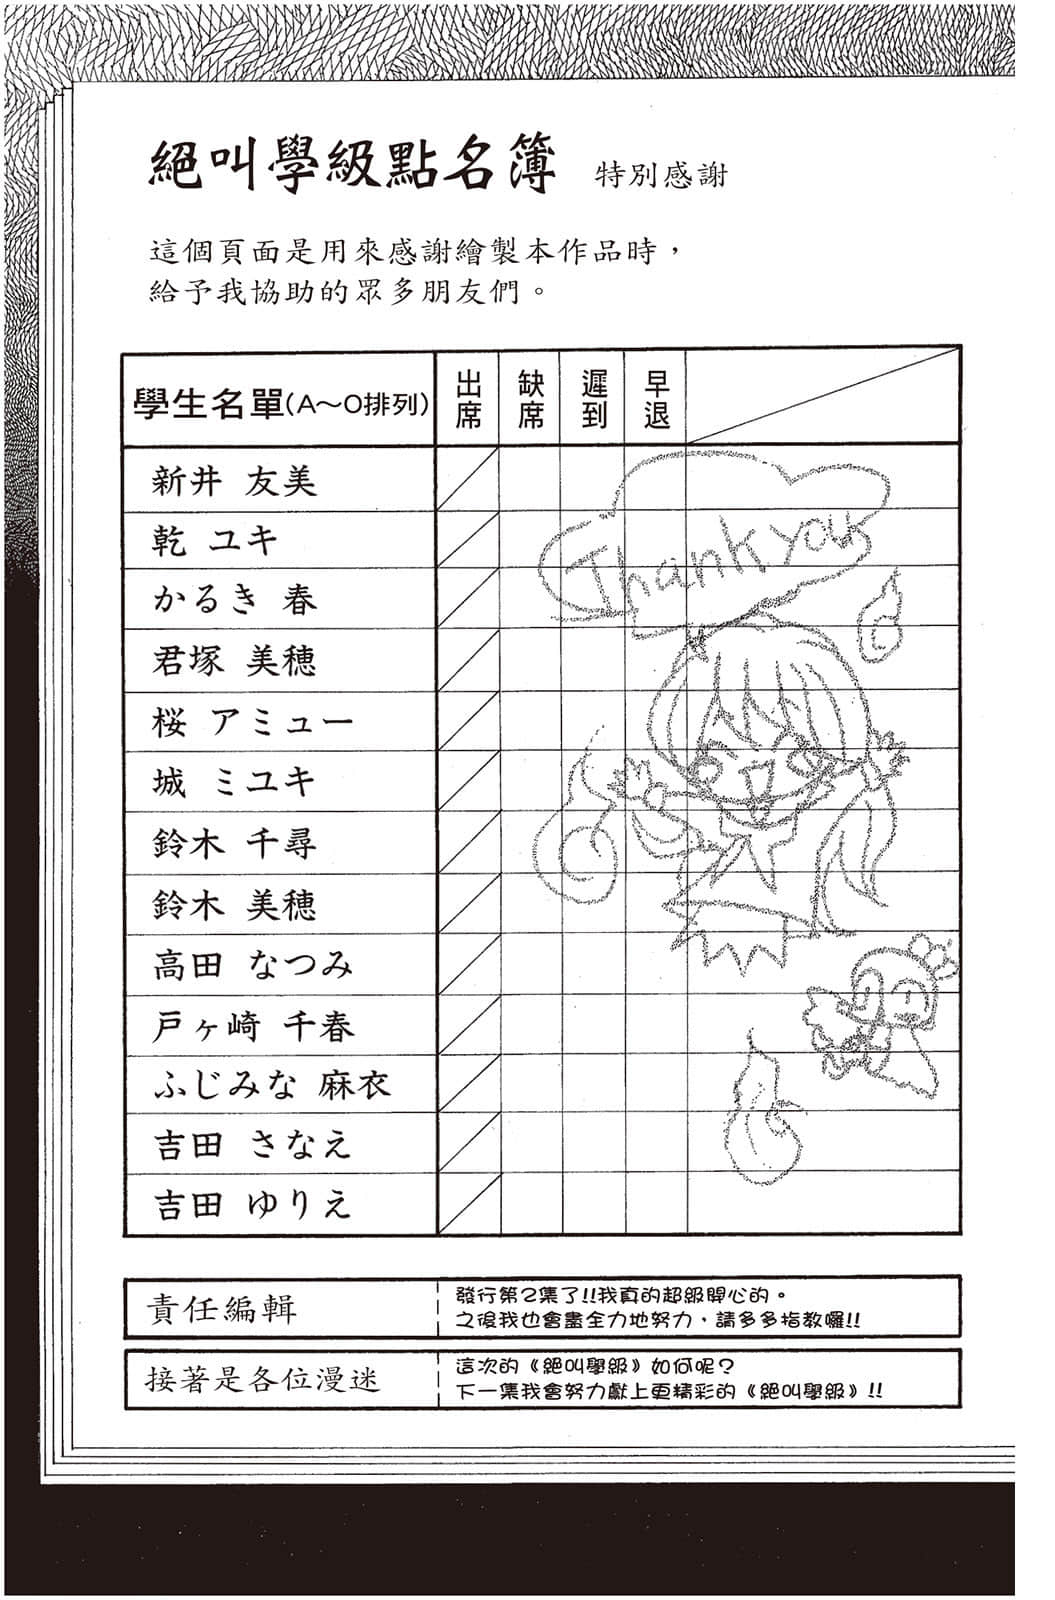 絕叫學級點名簿 特別感謝
這個頁面是用來感謝繪製本作品時，
給予我協助的眾多朋友們。
學生名單(A～O排列) 出席 缺席 遲到 早退
新井 友美
乾 ユキ
かるき 春
君塚 美穂
桜 アミュー
城 ミユキ
鈴木 千尋
鈴木 美穂
高田 なつみ
戸ヶ崎 千春
ふじみな 麻衣
吉田 さなえ
吉田 ゆりえ
Thank you
責任編輯
發行第2集了!!我真的超級開心的。
之後我也會盡全力地努力，請多多指教囉!!
接著是各位漫迷
這次的《絕叫學級》如何呢？
下一集我會努力獻上更精彩的《絕叫學級》!!